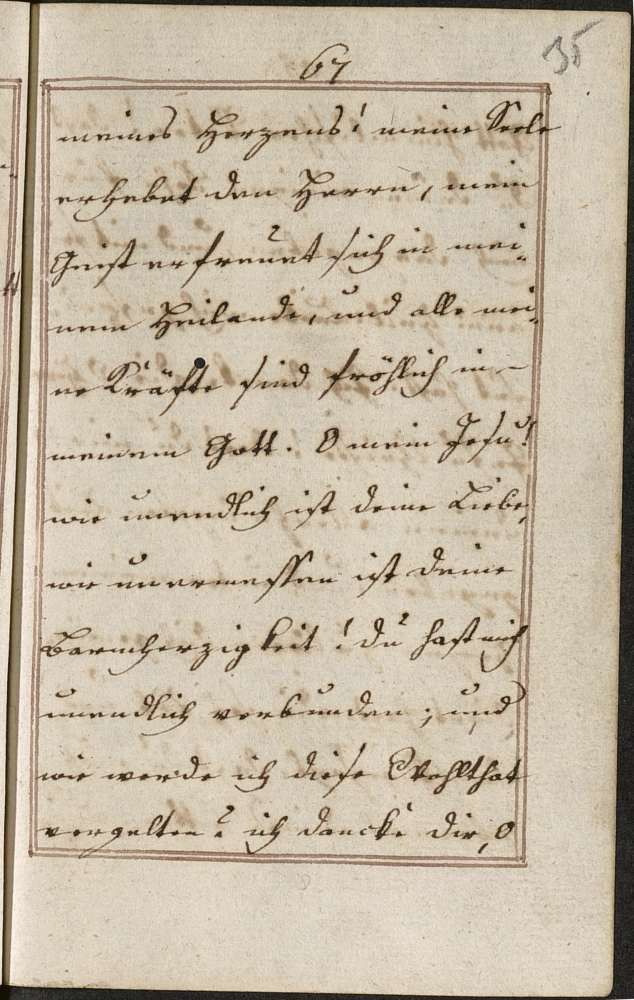 67
35
meines Herzens! meine Seele
erhebet den Herrn, mein
Geist erfreuet sich in mei-
nem Heilande, und alle mei-
ne Kräfte sind fröhlich in -
meinem Gott. O mein Jesu!
wie unendlich ist deine Liebe,
wie unermessen ist deine
Barmherzigkeit! du hast mich
unendlich verbunden; und
wie werde ich diese Wohlthat
vergelten? ich dancke dir, O